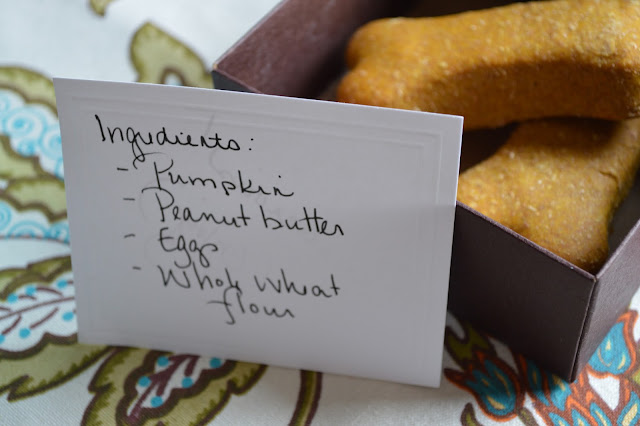 Ingredients:
- Pumpkin
- Peanut butter
- Eggs
- Whole wheat
flour